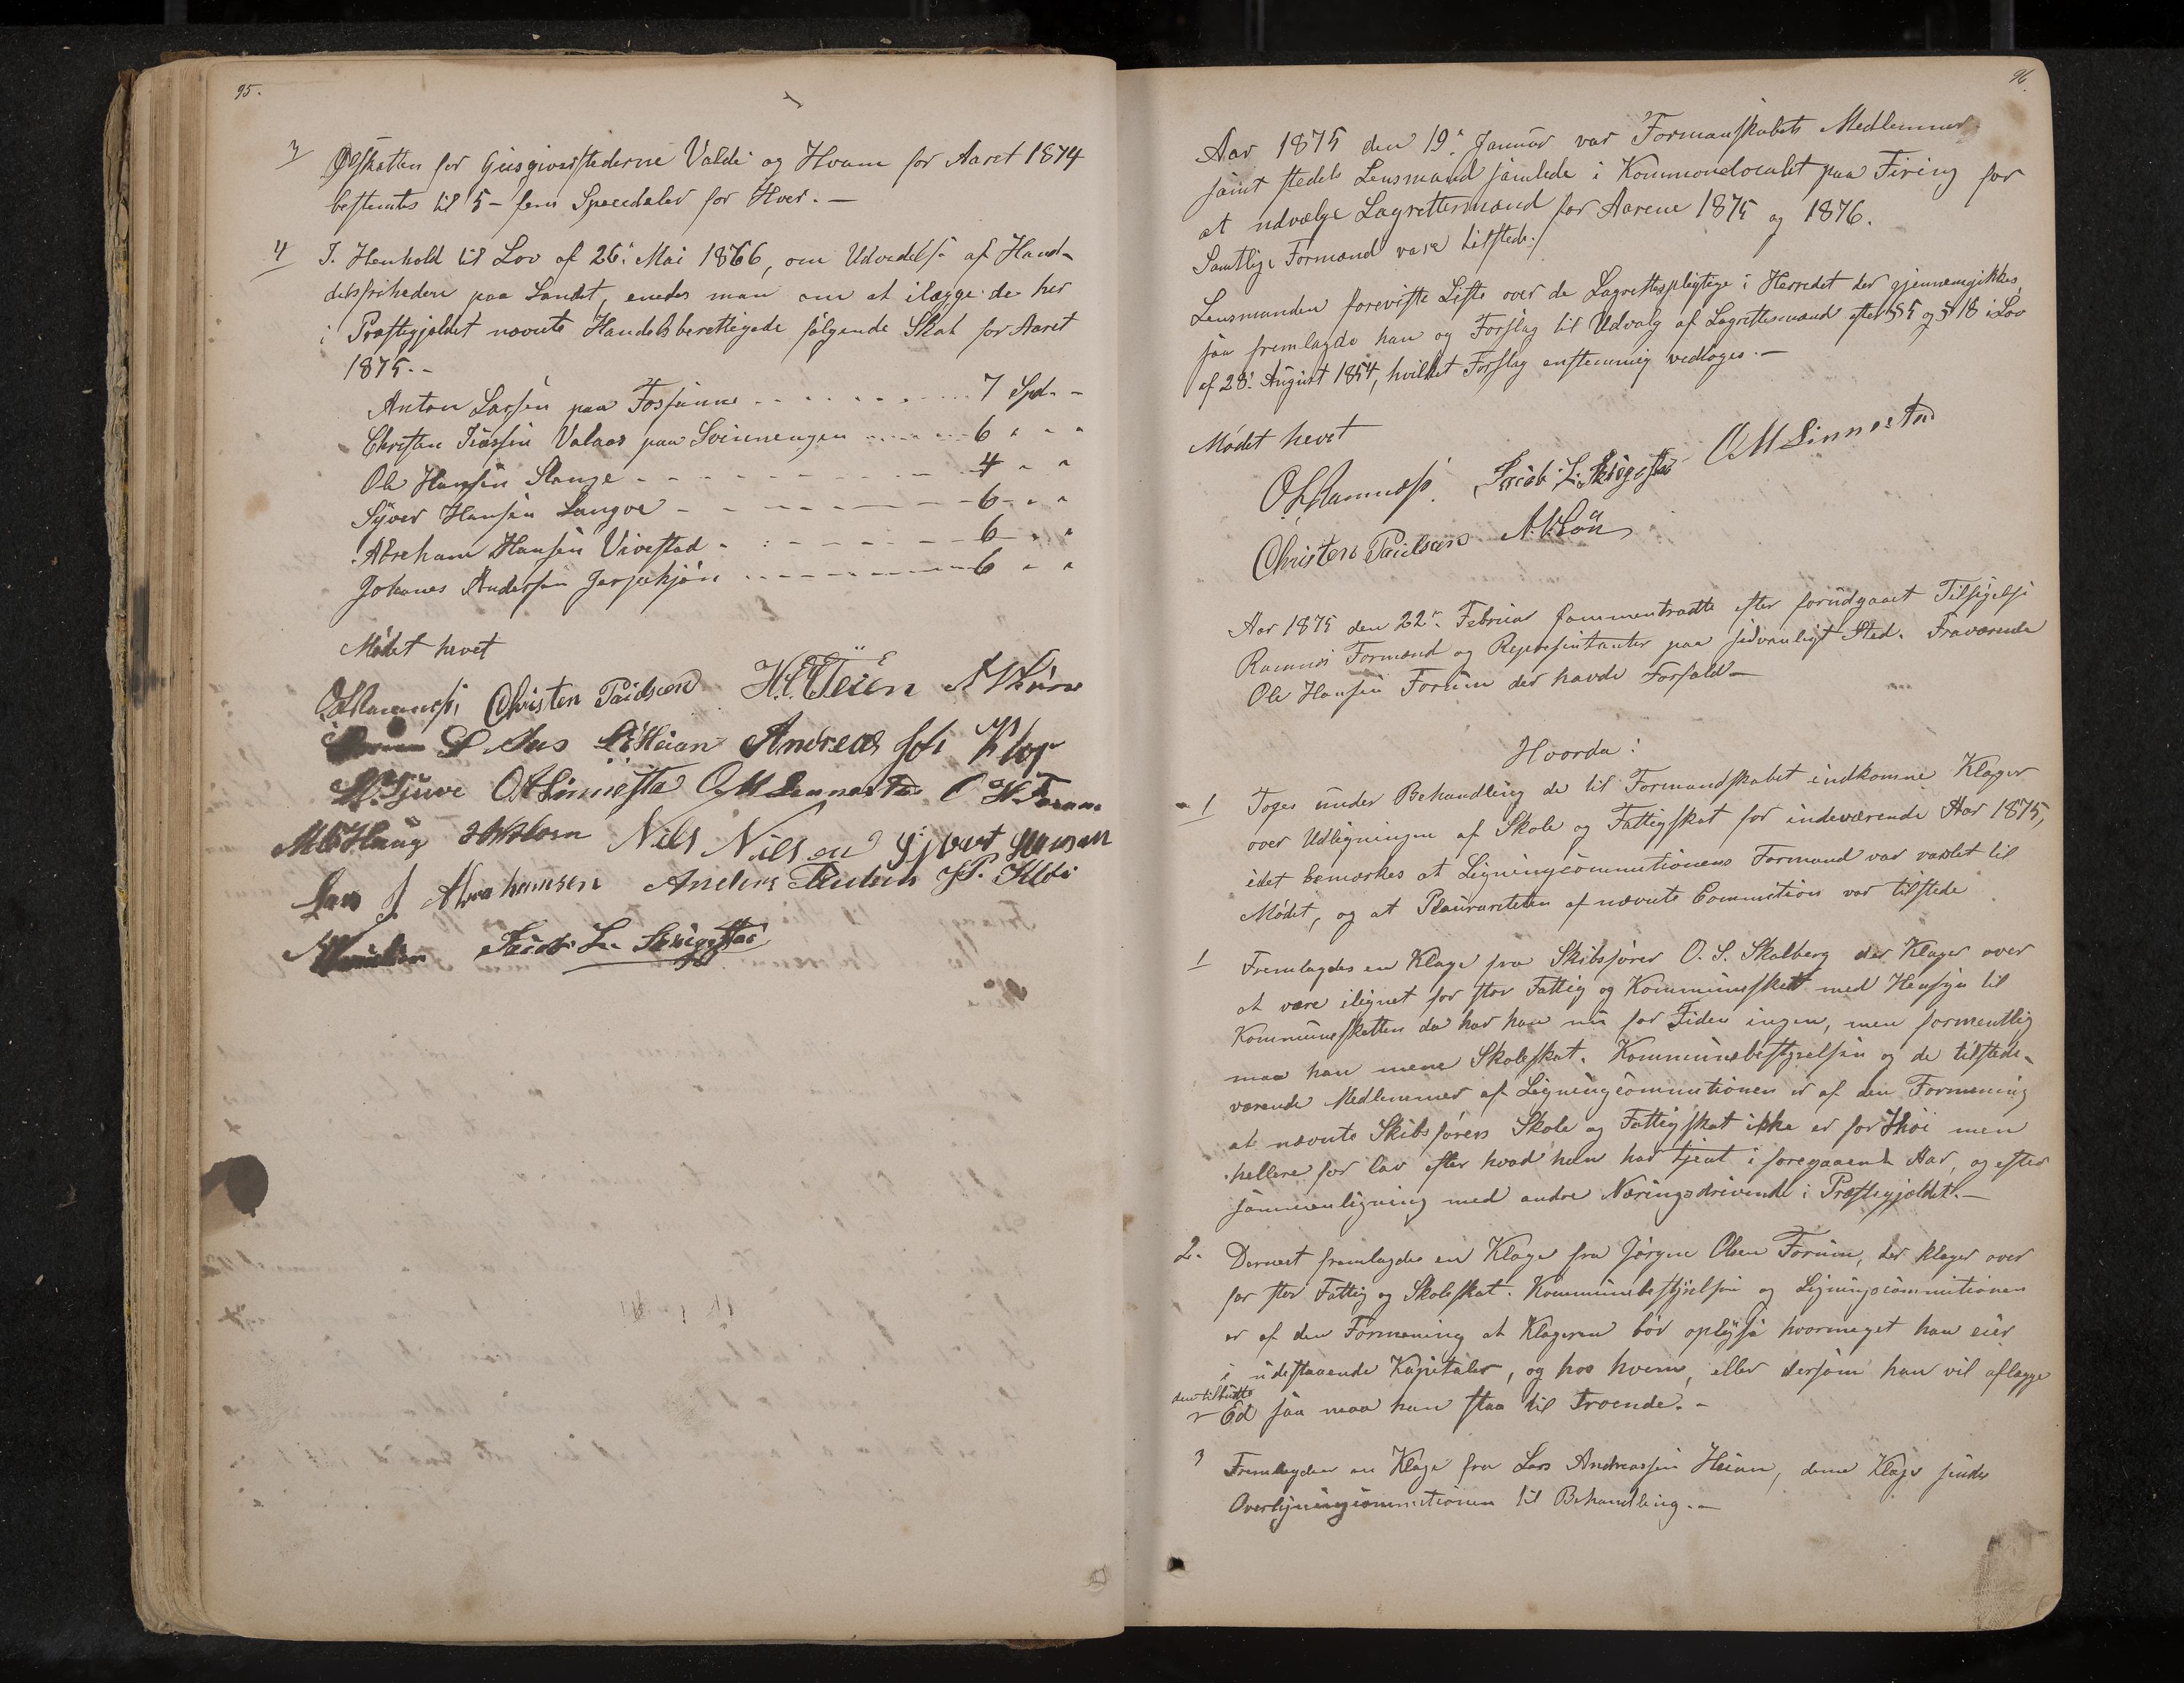 95.
3 Ølskatten for Gjesgiverstederne Valde og Hvam for Aaret 1874
bestemtes til 5 - fem Speciedaler for Hver. -
4 I. Henhold til Lov af 26de Mai 1866, om Udvidelse af Hand-
delsfriheden paa Landet, enedes man om at ilægge de her
i Præstegjeldet nævnte Handelsberettigede følgende Skat for Aaret
1875.-
Anton Larsen paa Fossanne 7 Spd. -
Christan Valaas paa Svinnengen 6 " "
Ole Hansen Stange 4 " "
Syver Hansen Langve 6 " "
Abraham Hansen Vivestad 6 " "
Johanes Andersen 6 " "
Mødet hevet
O. Ramnes, Christen Paulsen H. C. Teien
L. Heian Andreas
O. M. Linnestad O. H. Forum
M. Haug Nils Nilsen Hansen
Lars J Abrahamsen Anders P. Klei
Jacob L. Skiggestad
96.
Aar 1875 den 19de Januar var Formanskabets Medlemmer
samt stedets Lensmand samlede i Kommunelocalet paa Firing for
at udvælge Lagrettesmænd for Aarene 1875 og 1876.
Samtlige Formænd vare tilstede.
Lensmanden foreviste Liste over de Lagrettespligtige i Herredet der gjennemgikkes,
saa fremlagde han og Forslag til Udvalg af Lagrettesmænd efter § 5 og § 18 i Lov
af 28de August 1854, hvilket Forslag enstemmig vedtoges. -
Mødet hevet
O. Ramness. Jacob L. Skiggestad O M Linnestad
Christen Paulsen
Aar 1875 den 22de Februar sammentraadte efter forudgaaet Tilsigelse
Ramnæs Formænd og Repræsentanter paa sedvanligt Sted. Fraværende
Ole Hansen Forum der havde Forfald -
Hvorda:
1 Toges under Behandling de til Formandskabet indkomne Klager
over Udligningen af Skole og Fattigskat for indeværende Aar 1875,
idet bemærkes at Ligningscommitionens Formand var varslet til
Mødet, og at Pluraliteten af nævnte Commition var tilstede
1 Fremlagdes en Klage fra Skibsfører O. S. Skalberg der Klager over
at være ilignet for stor Fattig og Kommuneskat med Hensyn til
Kommuneskatten da har han nu for Tiden ingen, men formentlig
maa han mene Skoleskat. Kommunebestyrelsen og de tilstede-
værende Medlemmer af Ligningscommitionen er af den Formening
at nævnte Skibsførers Skole og Fattigskat ikke er for Høi men
hellere for lav efter hvad han har tjent i foregaaende Aar, og efter
sammenligning med andre Næringsdrivende i Præstegjeldet. -
2. Dernest fremlagdes en Klage fra Jørgen Olsen Forum, der klager over
for stor Fattig og Skoleskat. Kommunebestyrelsen og Ligningscommitionen
er af den Formening at Klageren bør oplyse hvormeget han eier
i udestaaende Kapitaler, og hos hvem, eller dersom han vil aflægge
den tilbudte
Ed saa maa han staa til Troende. -
3 Fremlagdes en Klage fra Lars Andreassen Heian, denne Klage sendes
Overligningscommitionen til Behandling. -